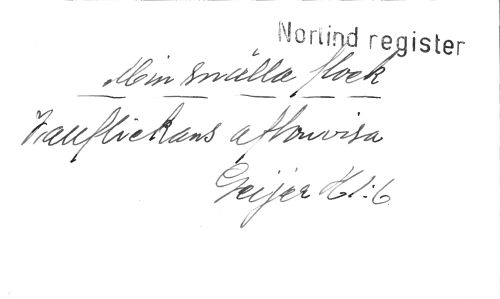 Norlind register
Min snälla flock
Vallflickans aftonvisa
Geijer H 1:6